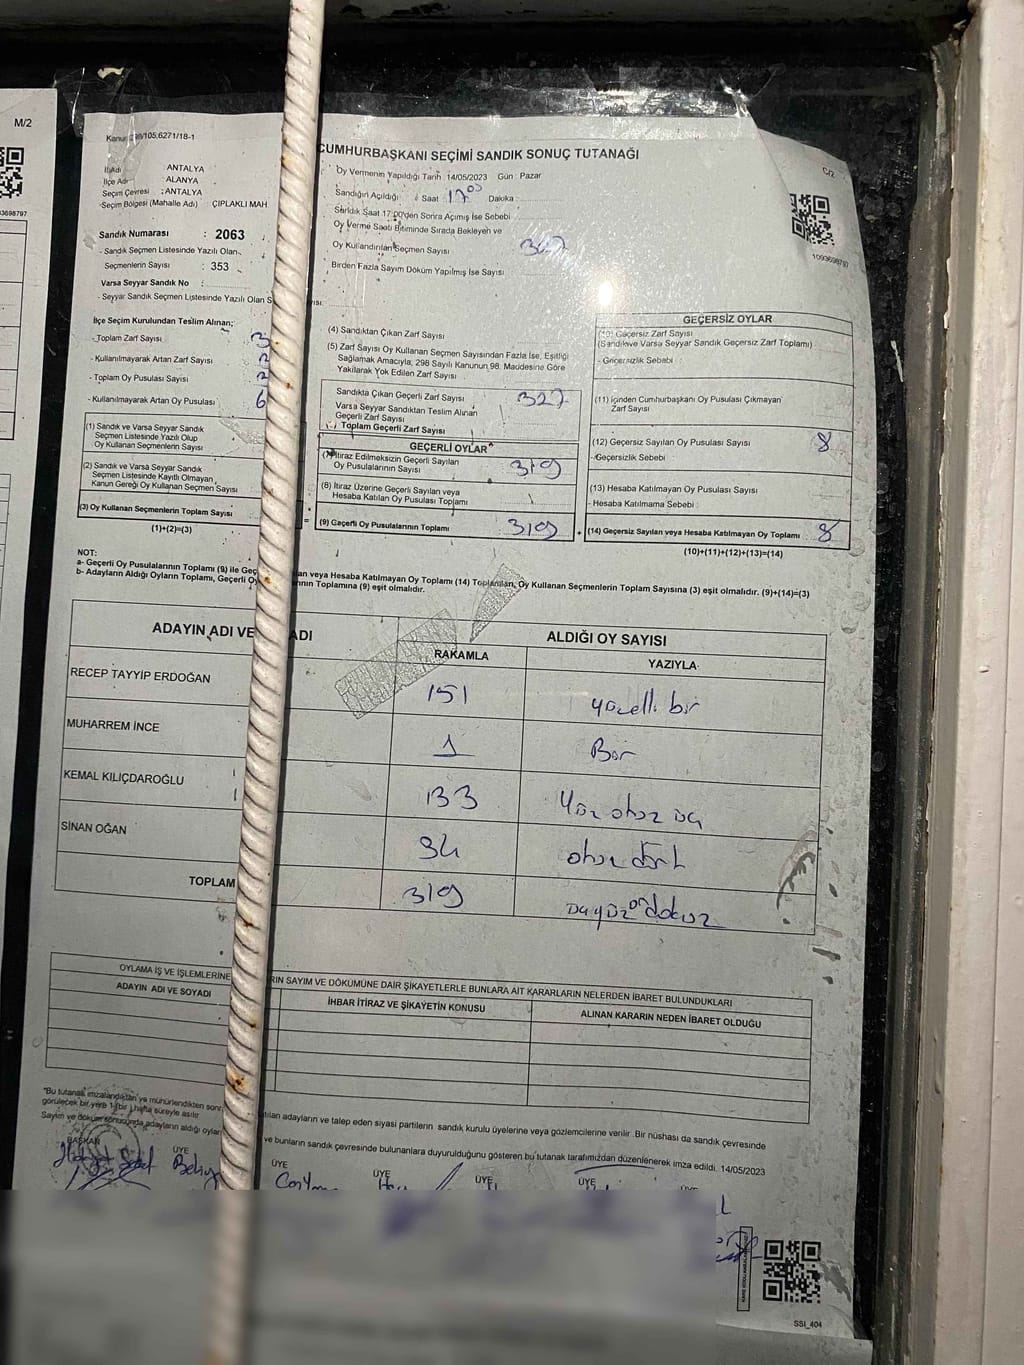 M/2
3698797
105,6271/18-1
CUMHURBAŞKANI SEÇİMİ SANDIK SONUÇ TUTANAĞI
C/2
1093698797
İl Adı ANTALYA
İlçe Adı ALANYA
Seçim Çevresi : ANTALYA
Seçim Bölgesi (Mahalle Adı) ÇIPLAKLI MAH
Sandık Numarası : 2063
- Sandık Seçmen Listesinde Yazılı Olan
Seçmenlerin Sayısı : 353
Varsa Seyyar Sandık No :
- Seyyar Sandık Seçmen Listesinde Yazılı Olan S
Oy Vermenin Yapıldığı Tarih :14/05/2023 Gün : Pazar
Sandığın Açıldığı : Saat 17 00 Dakika :
Sandık Saat 17:00'den Sonra Açımış İse Sebebi
Oy Verme Saati Bitiminde Sırada Bekleyen ve
Oy Kullandırılan Seçmen Sayısı
Birden Fazla Sayım Döküm Yapılmış İse Sayısı
İlçe Seçim Kurulundan Teslim Alınan;
- Toplam Zarf Sayısı
- Kullanılmayarak Artan Zarf Sayısı
- Toplam Oy Pusulası Sayısı
- Kullanılmayarak Artan Oy Pusulası
(1) Sandık ve Varsa Seyyar Sandık
Seçmen Listesinde Yazılı Olup
Oy Kullanan Seçmenlerin Sayısı
(2) Sandık ve Varsa Seyyar Sandık
Seçmen Listesinde Kayıtlı Olmayan
Kanun Gereği Oy Kullanan Seçmen Sayısı
(3) Oy Kullanan Seçmenlerin Toplam Sayısı
(1)+(2)=(3)
(4) Sandıktan Çıkan Zarf Sayısı
(5) Zarf Sayısı Oy Kullanan Seçmen Sayısından Fazla İse, Eşitliği
Sağlamak Amacıyla, 298 Sayılı Kanunun 98. Maddesine Göre
Yakılarak Yok Edilen Zarf Sayısı
Sandıkta Çıkan Geçerli Zarf Sayısı 327
Varsa Seyyar Sandıktan Teslim Alınan
Geçerli Zarf Sayısı
Toplam Geçerli Zarf Sayısı
GEÇERLİ OYLAR
İtiraz Edilmeksizin Geçerli Sayılan
Oy Pusulalarının Sayısı 319
(8) İtiraz Üzerine Geçerli Sayılan veya
Hesaba Katılan Oy Pusulası Toplamı
= (9) Geçerli Oy Pusulalarının Toplamı 319
GEÇERSİZ OYLAR
(10) Geçersiz Zarf Sayısı
(Sandık ve Varsa Seyyar Sandık Geçersiz Zarf Toplamı)
- Geçersizlik Sebebi
(11) İçinden Cumhurbaşkanı Oy Pusulası Çıkmayan
Zarf Sayısı
(12) Geçersiz Sayılan Oy Pusulası Sayısı 8
- Geçersizlik Sebebi
(13) Hesaba Katılmayan Oy Pusulası Sayısı
- Hesaba Katılmama Sebebi
+ (14) Geçersiz Sayılan veya Hesaba Katılmayan Oy Toplamı 8
(10)+(11)+(12)+(13)=(14)
NOT:
a- Geçerli Oy Pusulalarının Toplamı (9) ile Geç an veya Hesaba Katılmayan Oy Toplamı (14) Toplamları, Oy Kullanan Seçmenlerin Toplam Sayısına (3) eşit olmalıdır. (9)+(14)=(3)
b- Adayların Aldığı Oyların Toplamı, Geçerli Oy rının Toplamına (9) eşit olmalıdır.
ADAYIN ADI VE ADI ALDIĞI OY SAYISI
RAKAMLA YAZIYLA
RECEP TAYYİP ERDOĞAN 151 yüzelli bir
MUHARREM İNCE 1 Bir
KEMAL KILIÇDAROĞLU 133 Yüz otuz üç
SİNAN OĞAN 34 otuz dört
TOPLAM 319 üçyüz on dokuz
OYLAMA İŞ VE İŞLEMLERİNE RIN SAYIM VE DÖKÜMÜNE DAİR ŞİKAYETLERLE BUNLARA AİT KARARLARIN NELERDEN İBARET BULUNDUKLARI
ADAYIN ADI VE SOYADI İHBAR İTİRAZ VE ŞİKAYETİN KONUSU ALINAN KARARIN NEDEN İBARET OLDUĞU
"Bu tutanak imzalandıktan ve mühürlendikten sonr tılan adayların ve talep eden siyasi partilerin sandık kurulu üyelerine veya gözlemcilerine verilir. Bir nüshası da sandık çevresinde
görülecek bir yere 1 (bir) hafta süreyle asılır
Sayım ve döküm sonucunda adayların aldığı oyları ve bunların sandık çevresinde bulunanlara duyurulduğunu gösteren bu tutanak tarafımızdan düzenlenerek imza edildi. 14/05/2023
BAŞKAN ÜYE ÜYE ÜYE ÜYE ÜYE
SSI_404